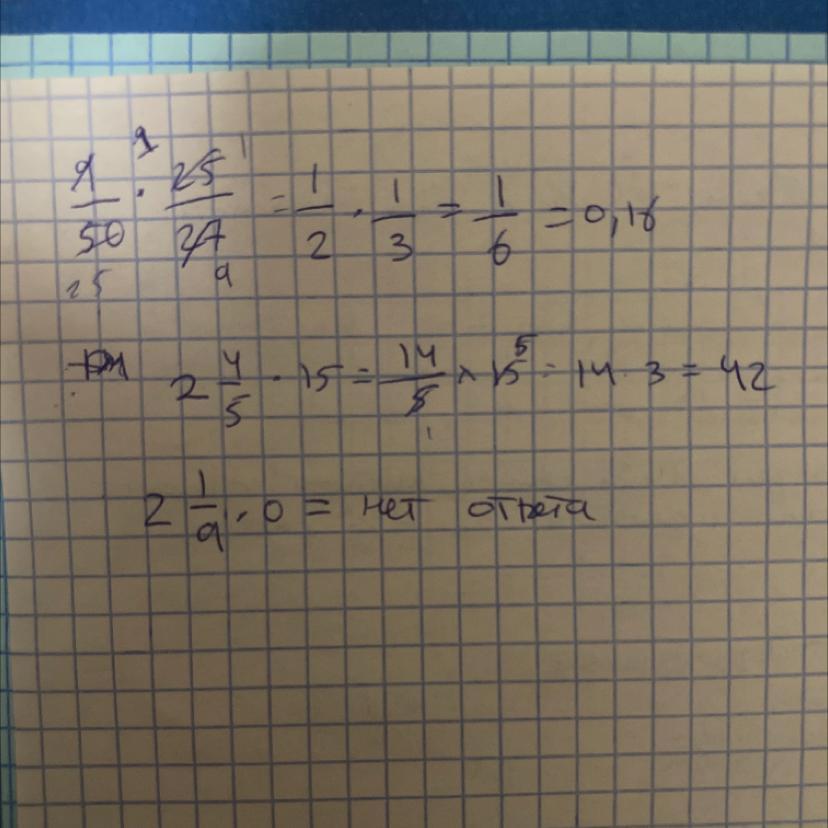 9/50 · 25/27 = 1/2 · 1/3 = 1/6 = 0,16
2 4/5 · 15 = 14/5 × 15 = 14 · 3 = 42
2 1/9 · 0 = нет ответа